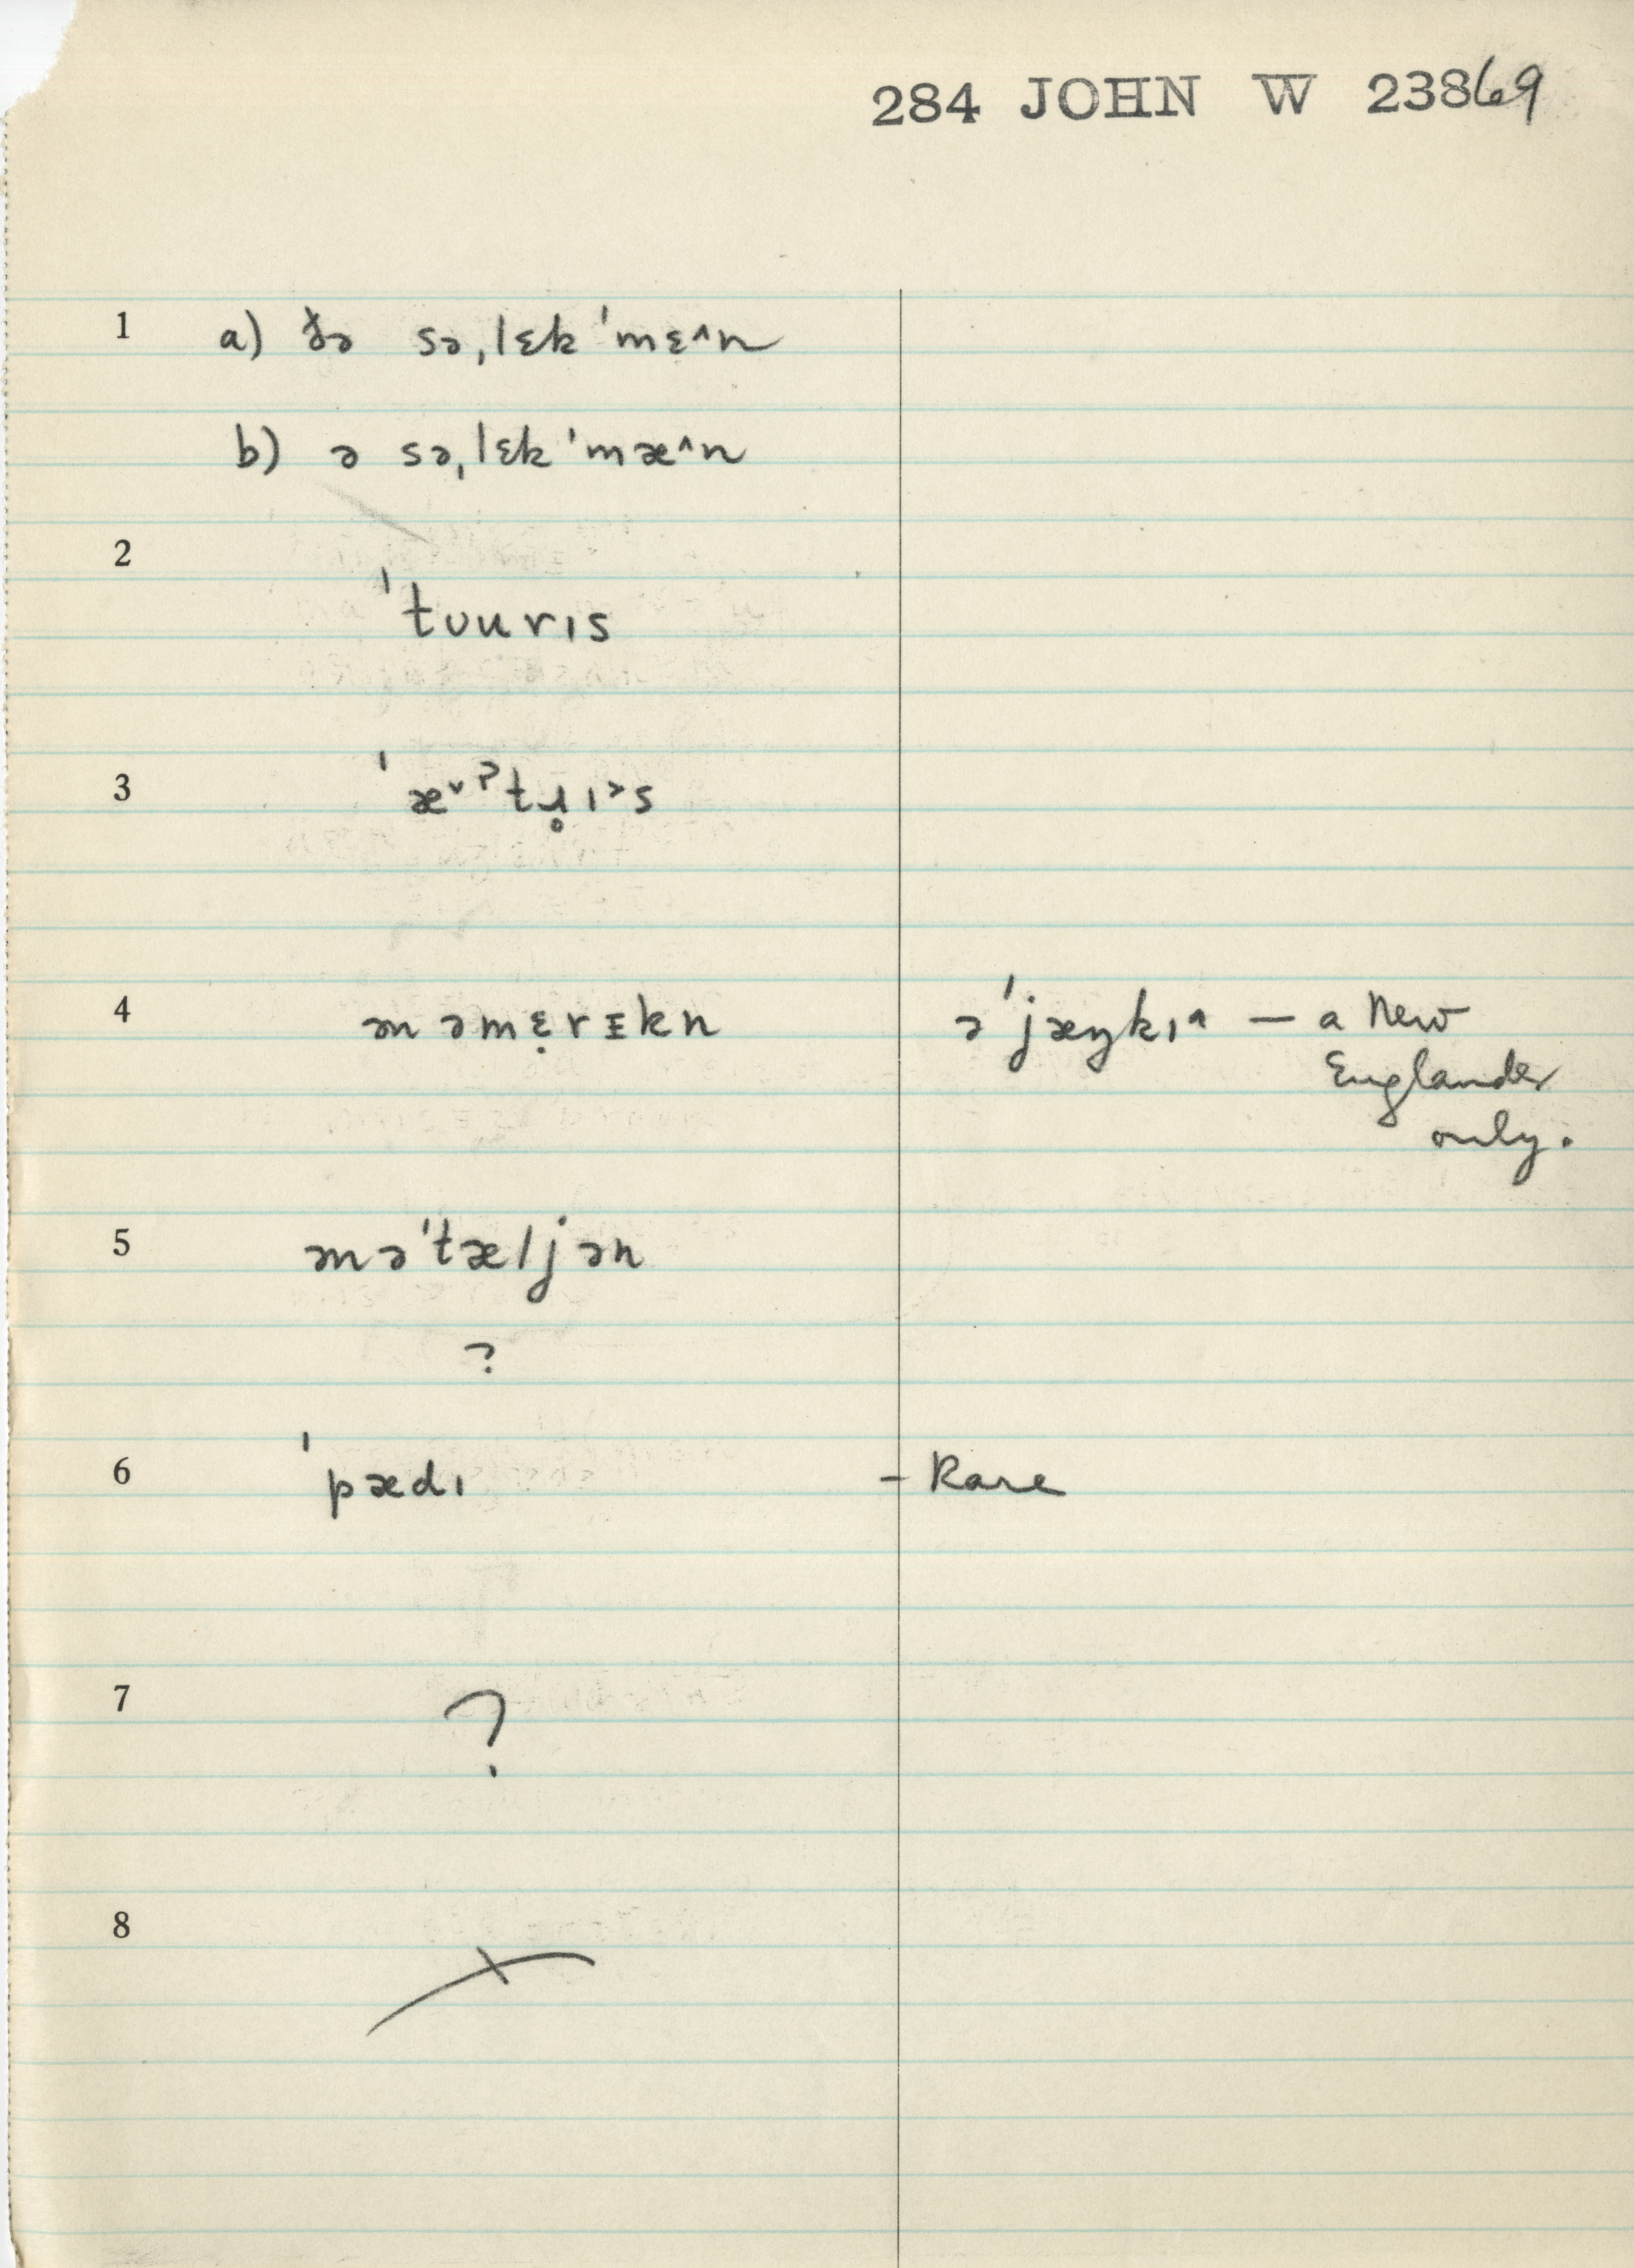 284 JOHN W 23869
1 a) ðə sə,lɛk 'mɛ^n
b) ə sə,lɛk 'mæ^n
2
'tʊuris
3 'æ˅ˀtɹ̥ɪ˃s
4 ən əmɛ̣rɪkn ə 'jæŋkɪ^ — a New
Englander
only.
5 ən ə'tæljən
?
6 'pædɪ - Rare
7 ?
8